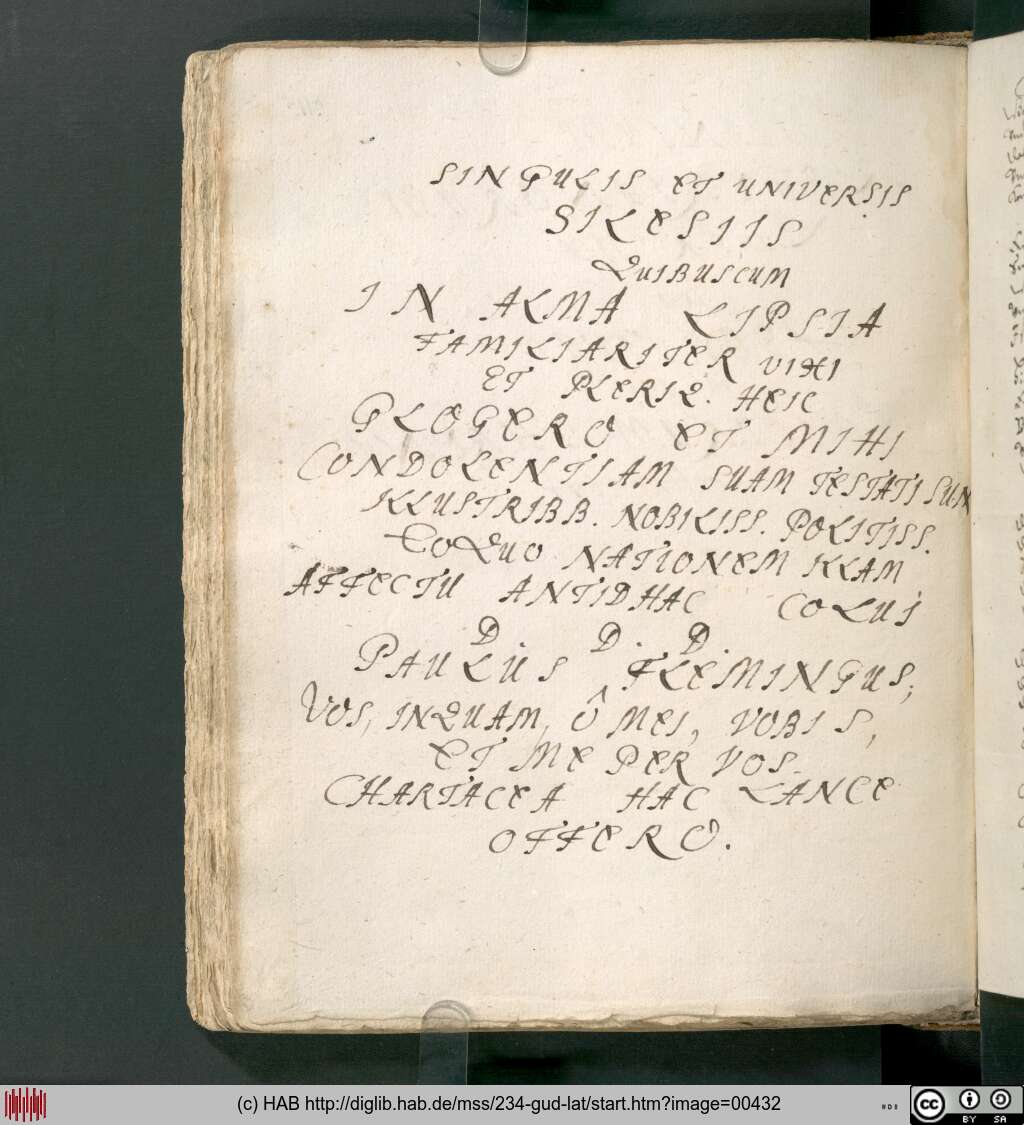 SINGULIS ET UNIVERSIS
SILESIIS
QUIBUSCUM
IN ALMA LIPSIA
FAMILIARITER VIXI
ET PLERIQ. HEIC
GLOGERO ET MIHI
CONDOLENTIAM SUAM TESTATI SUN
ILLUSTRIBB. NOBILISS. POLITISS.
EOQUO NATIONEM ILLAM
AFFECTU ANTIDHAC COLUI
D. D. D.
PAULUS FLEMINGUS,
VOS, INQUAM, Ô MEI, VOBIS,
ET ME PER VOS.
CHARTACEA HAC LANCE
OFFERO.
(c) HAB http://diglib.hab.de/mss/234-gud-lat/start.htm?image=00432
cc BY SA